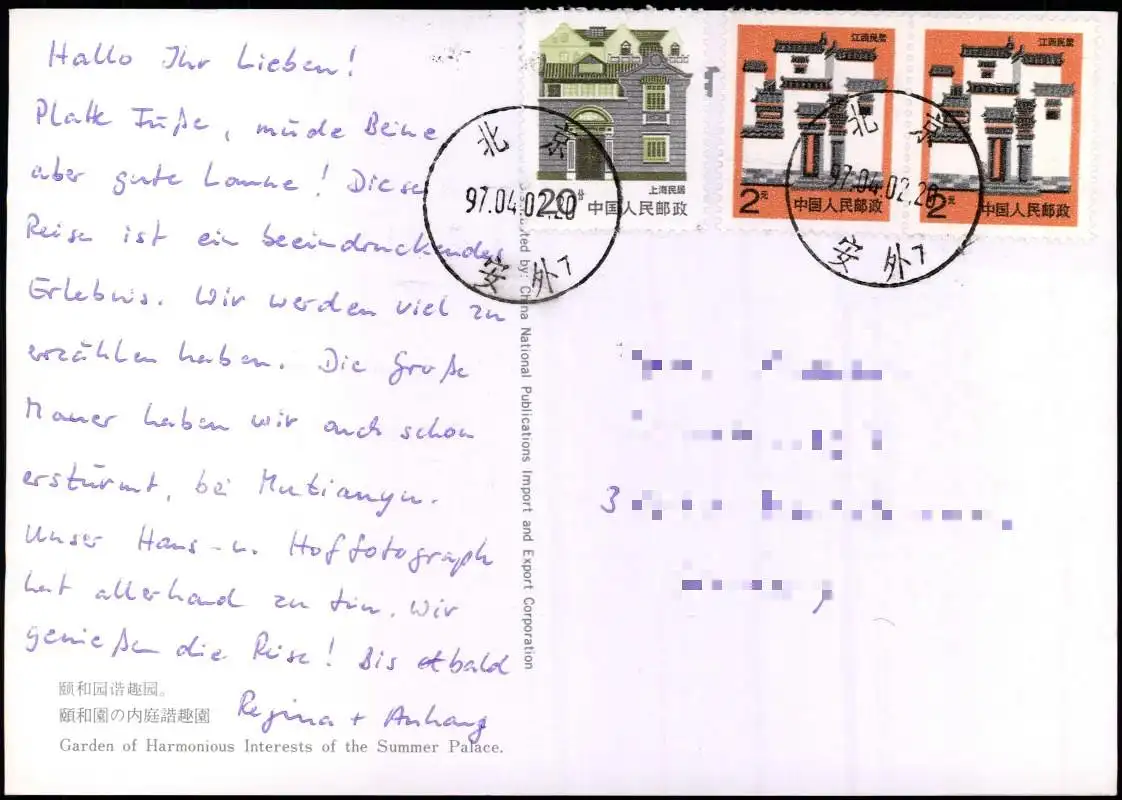 Hallo Ihr Lieben!
Platte Füße, müde Beine
aber gute Laune! Diese
Reise ist ein beeindruckendes
Erlebnis. Wir werden viel zu
erzählen haben. Die Große
Mauer haben wir auch schon
erstürmt, bei Mutianyu.
Unser Haus- u. Hoffotograph
hat allerhand zu tun. Wir
genießen die Reise! Bis bald
Regina + Anhang
颐和园谐趣园。
頤和園の内庭諧趣園
Garden of Harmonious Interests of the Summer Palace.
by: China National Publications Import and Export Corporation
上海民居
20分 中国人民邮政
江西民居
2元 中国人民邮政
江西民居
2元 中国人民邮政
北京
97.04.02.20
安外7
北京
97.04.02.20
安外7
3